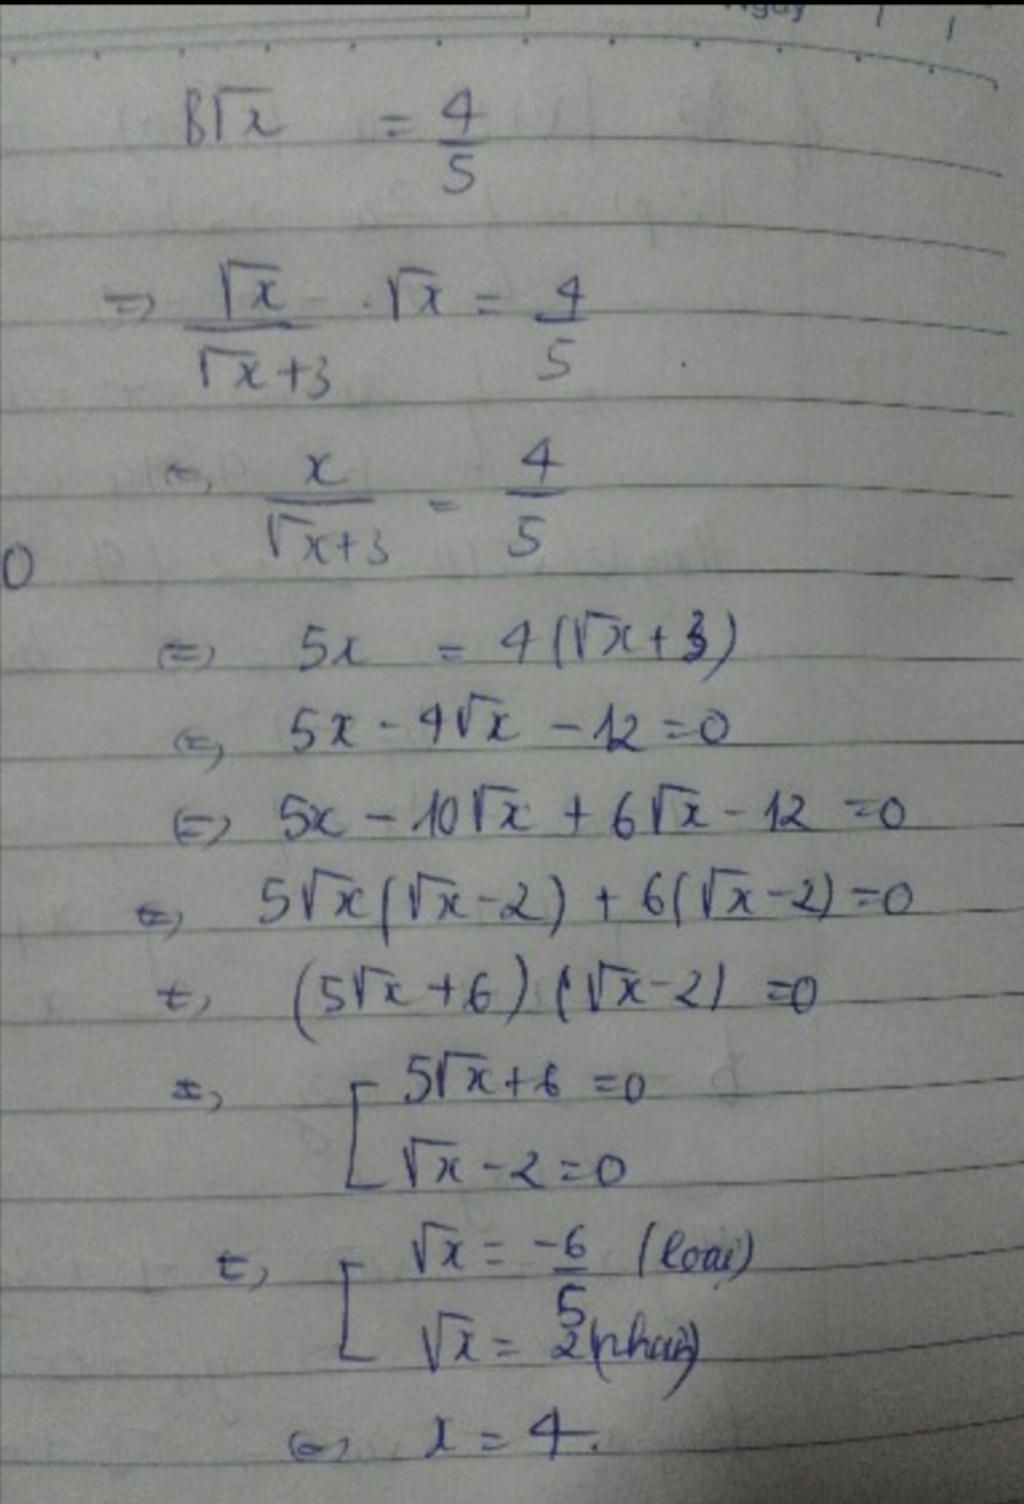 Ngày / /
B√x = 4/5
=> √x/(√x+3) . √x = 4/5
<=> x/(√x+3) = 4/5
0
<=> 5x = 4(√x+3)
<=> 5x - 4√x - 12 = 0
<=> 5x - 10√x + 6√x - 12 = 0
<=> 5√x(√x-2) + 6(√x-2) = 0
<=> (5√x+6)(√x-2) = 0
<=> [ 5√x+6 = 0
√x-2 = 0
<=> [ √x = -6/5 (loại)
√x = 2 (nhận)
<=> x = 4.